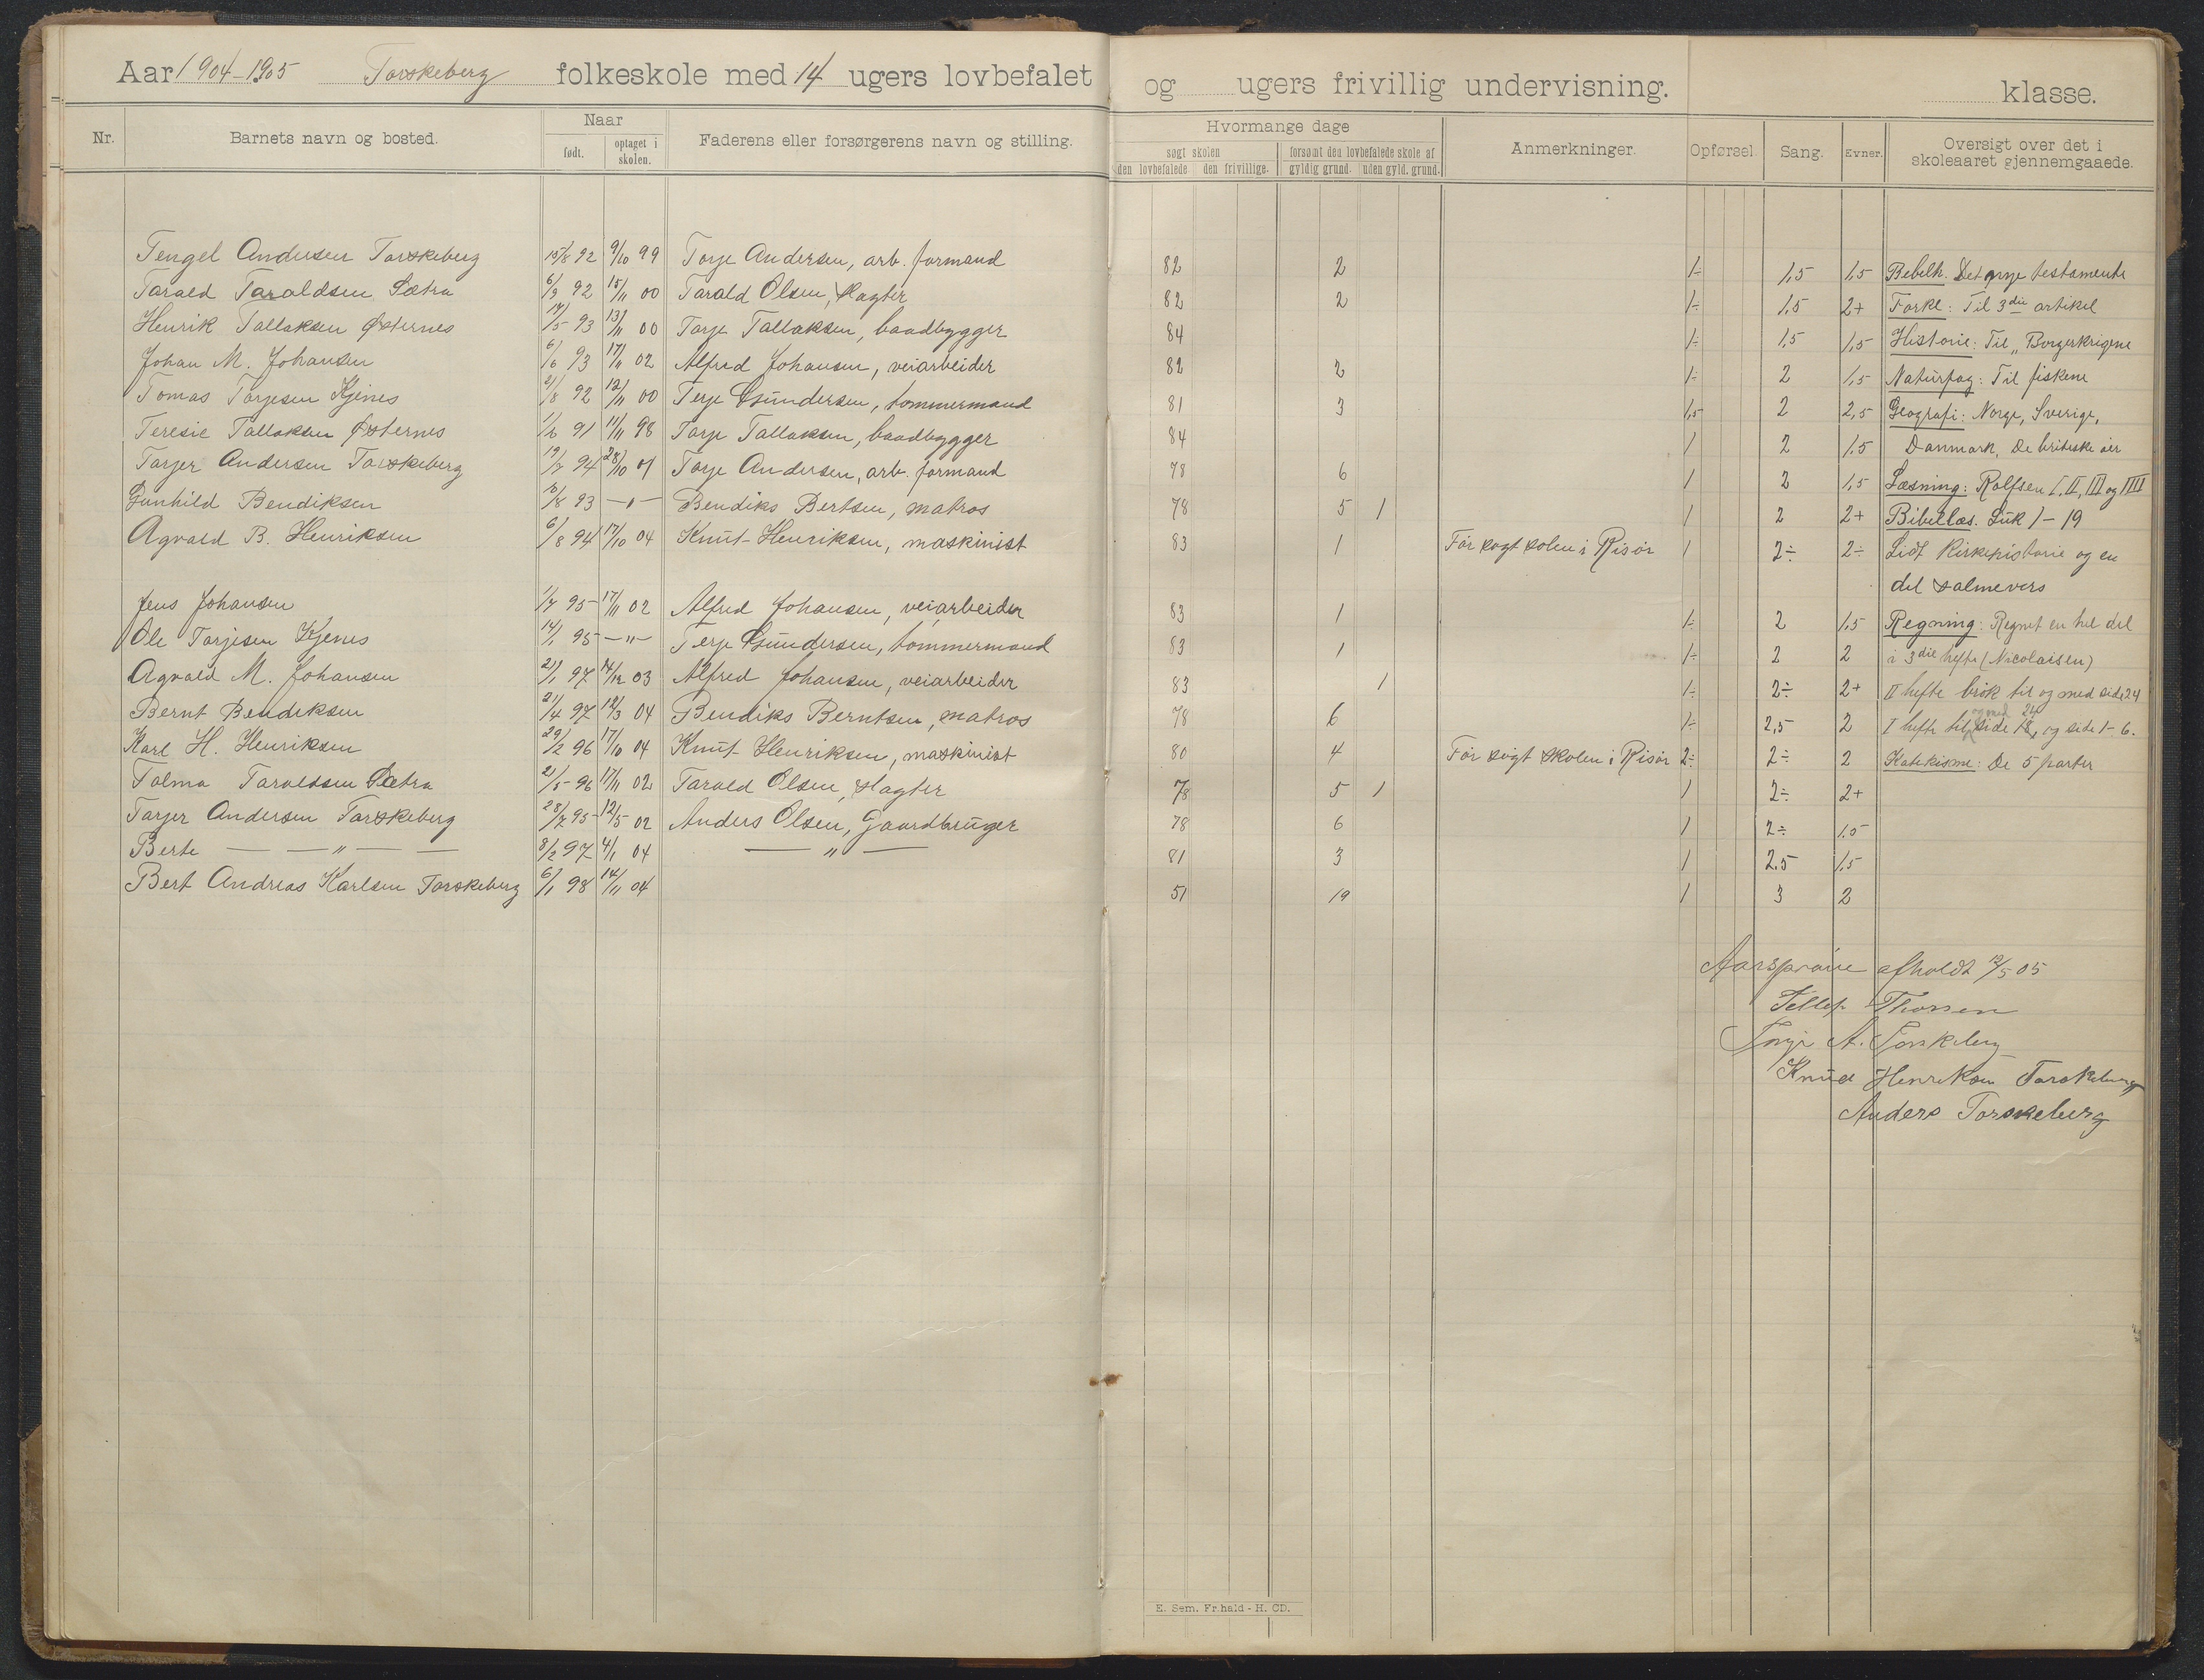 Aar 1904-1905 Torskeberg folkeskole med 14 ugers lovbefalet og ugers frivillig undervisning. klasse.
Nr. Barnets navn og bosted. Naar født. optaget i skolen. Faderens eller forsørgerens navn og stilling. Hvormange dage søgt skolen den lovbefalede. den frivillige. forsømt den lovbefalede skole af gyldig grund. uden gyld. grund. Anmerkninger. Opførsel. Sang. Evner. Oversigt over det i skoleaaret gjennemgaaede.
Tengel Andersen Torskeberg 15/8 92 9/10 99 Torje Andersen, arb. formand 82 2 1÷ 1,5 1,5 Bebelh. Det nye testamente
Tarald Taraldsen Sætra 6/9 92 15/11 00 Tarald Olsen, slagter 82 2 1÷ 1,5 2+ Forkl: Til 3die artikel
Henrik Tallaksen Østernes 17/5 93 13/11 00 Torje Tallaksen, baadbygger 84 1÷ 1,5 1,5 Historie: Til "Borgerkrigene
Johan M. Johansen 6/6 93 17/11 02 Alfred Johansen, veiarbeider 82 2 1÷ 2 1,5 Naturfag: Til fiskene
Tomas Torjesen Kjenes 21/8 92 12/11 00 Terje Gundersen, tommermand 81 3 1,5 2 2,5 Geografi: Norge, Sverige,
Teresie Tallaksen Østernes 1/6 91 11/11 98 Torje Tallaksen, baadbygger 84 1 2 1,5 Danmark, De briteske øer
Torjer Andersen Torskeberg 19/7 94 28/10 01 Torje Andersen, arb. formand 78 6 1 2 1,5 Læsning: Rolfsen I, II, III og IIII
Gunhild Bendiksen 10/8 93 —"— Bendiks Bertsen, matros 78 5 1 1 2 2+ Bibellæs. Luk 1-19
Agvald B. Henriksen 6/8 94 17/10 04 Knut Henriksen, maskinist 83 1 Før søgt solen i Risør 1 2÷ 2÷ Lidt Kirkehistorie og en
del salmevers
Jens Johansen 1/7 95 17/11 02 Alfred Johansen, veiarbeider 83 1 1÷ 2 1,5 Regning: Regnet en hel del
Ole Torjesen Kjenes 14/1 95 —"— Terje Gundersen, tommermand 83 1 1÷ 2 2 i 3die hefte (Nicolaisen)
Agvald M. Johansen 21/1 97 14/12 03 Alfred Johansen, veiarbeider 83 1 1÷ 2÷ 2+ II hefte brøk til og med side 24
Bernt Bendiksen 21/4 97 12/3 04 Bendiks Berntsen, matros 78 6 1÷ 2,5 2 I hefte til og med side 18, 24 og side 1-6.
Karl H. Henriksen 29/2 96 17/10 04 Knut Henriksen, maskinist 80 4 Før søgt skolen i Risør 2÷ 2÷ 2 Katekisme: De 5 parter
Tolma Taraldsen Sætra 21/5 96 17/11 02 Tarald Olsen, slagter 78 5 1 1 2÷ 2+
Torjer Andersen Torskeberg 28/7 95 12/5 02 Anders Olsen, Gaardbruger 78 6 1 2÷ 1.5
Berte — — " — — 8/2 97 4/1 04 — " — 81 3 1 2.5 1,5
Bert Andreas Karlsen Torskeberg 6/1 98 14/11 04 51 19 1 3 2
Aarsprøve afholdt 12/5 05
Tellef Thorsen
Torje A. Torskeberg
Knud Henriksen Torskeberg
Anders Torskeberg
E. Sem. Fr.hald - H. CD.